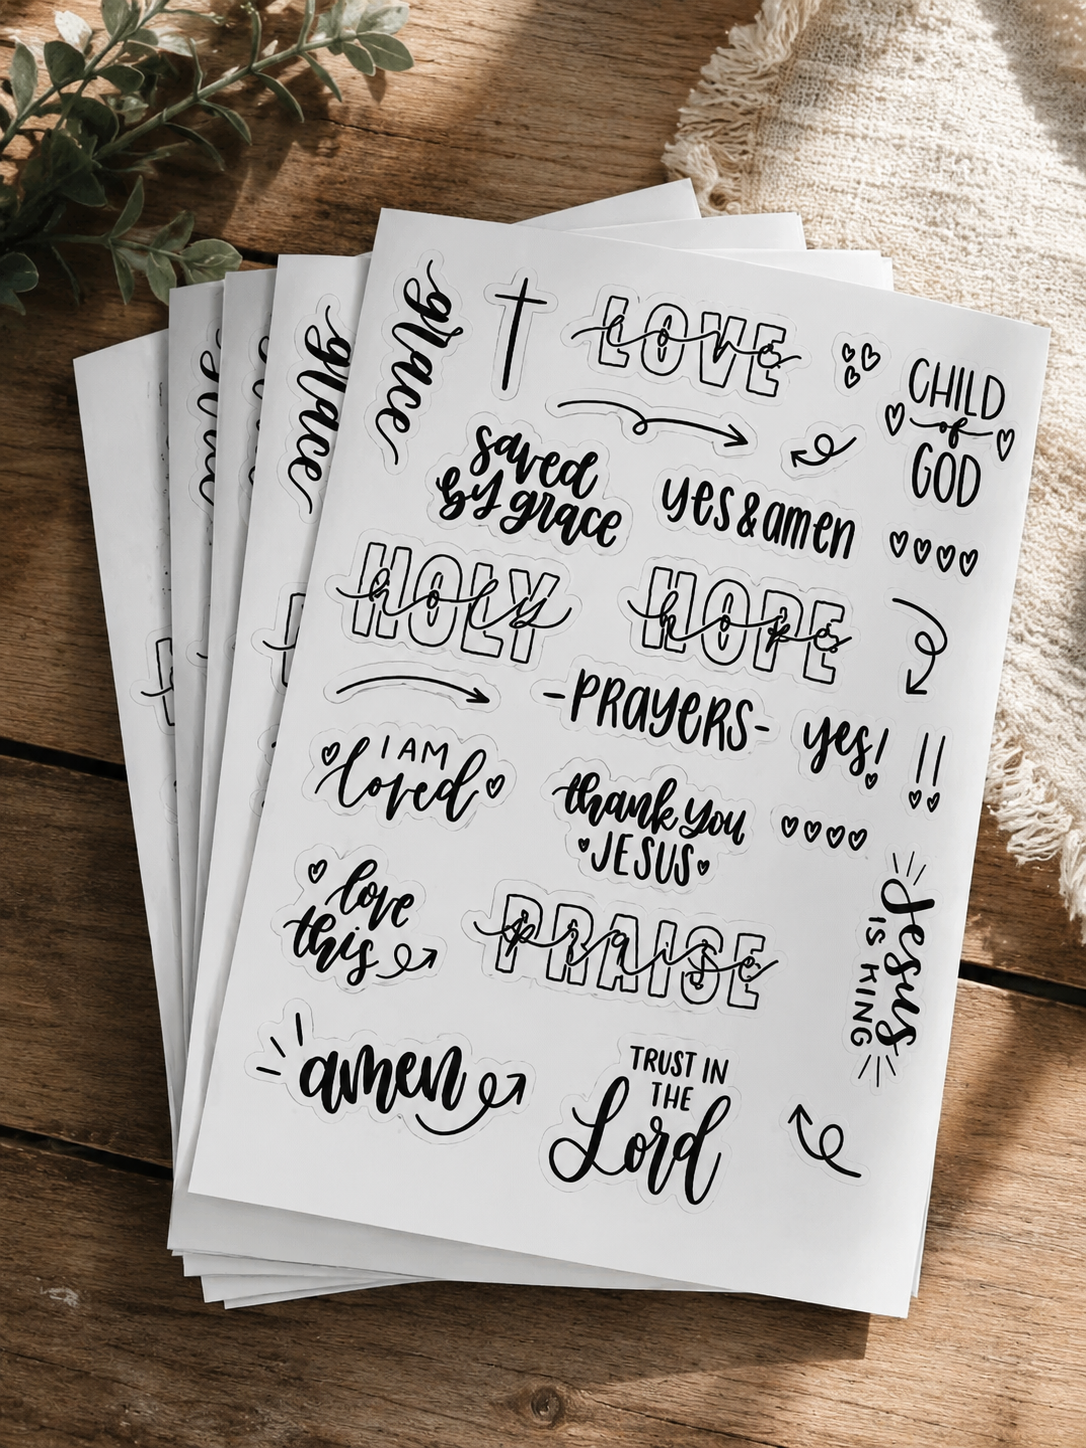 grace
LOVE
love
CHILD
of
GOD
saved
by grace
yes & amen
HOLY
holy
HOPE
hope
-PRAYERS-
yes!
!!
I AM
loved
thank you
JESUS
love
this
PRAISE
praise
Jesus
IS KING
amen
TRUST IN
THE
Lord
grace